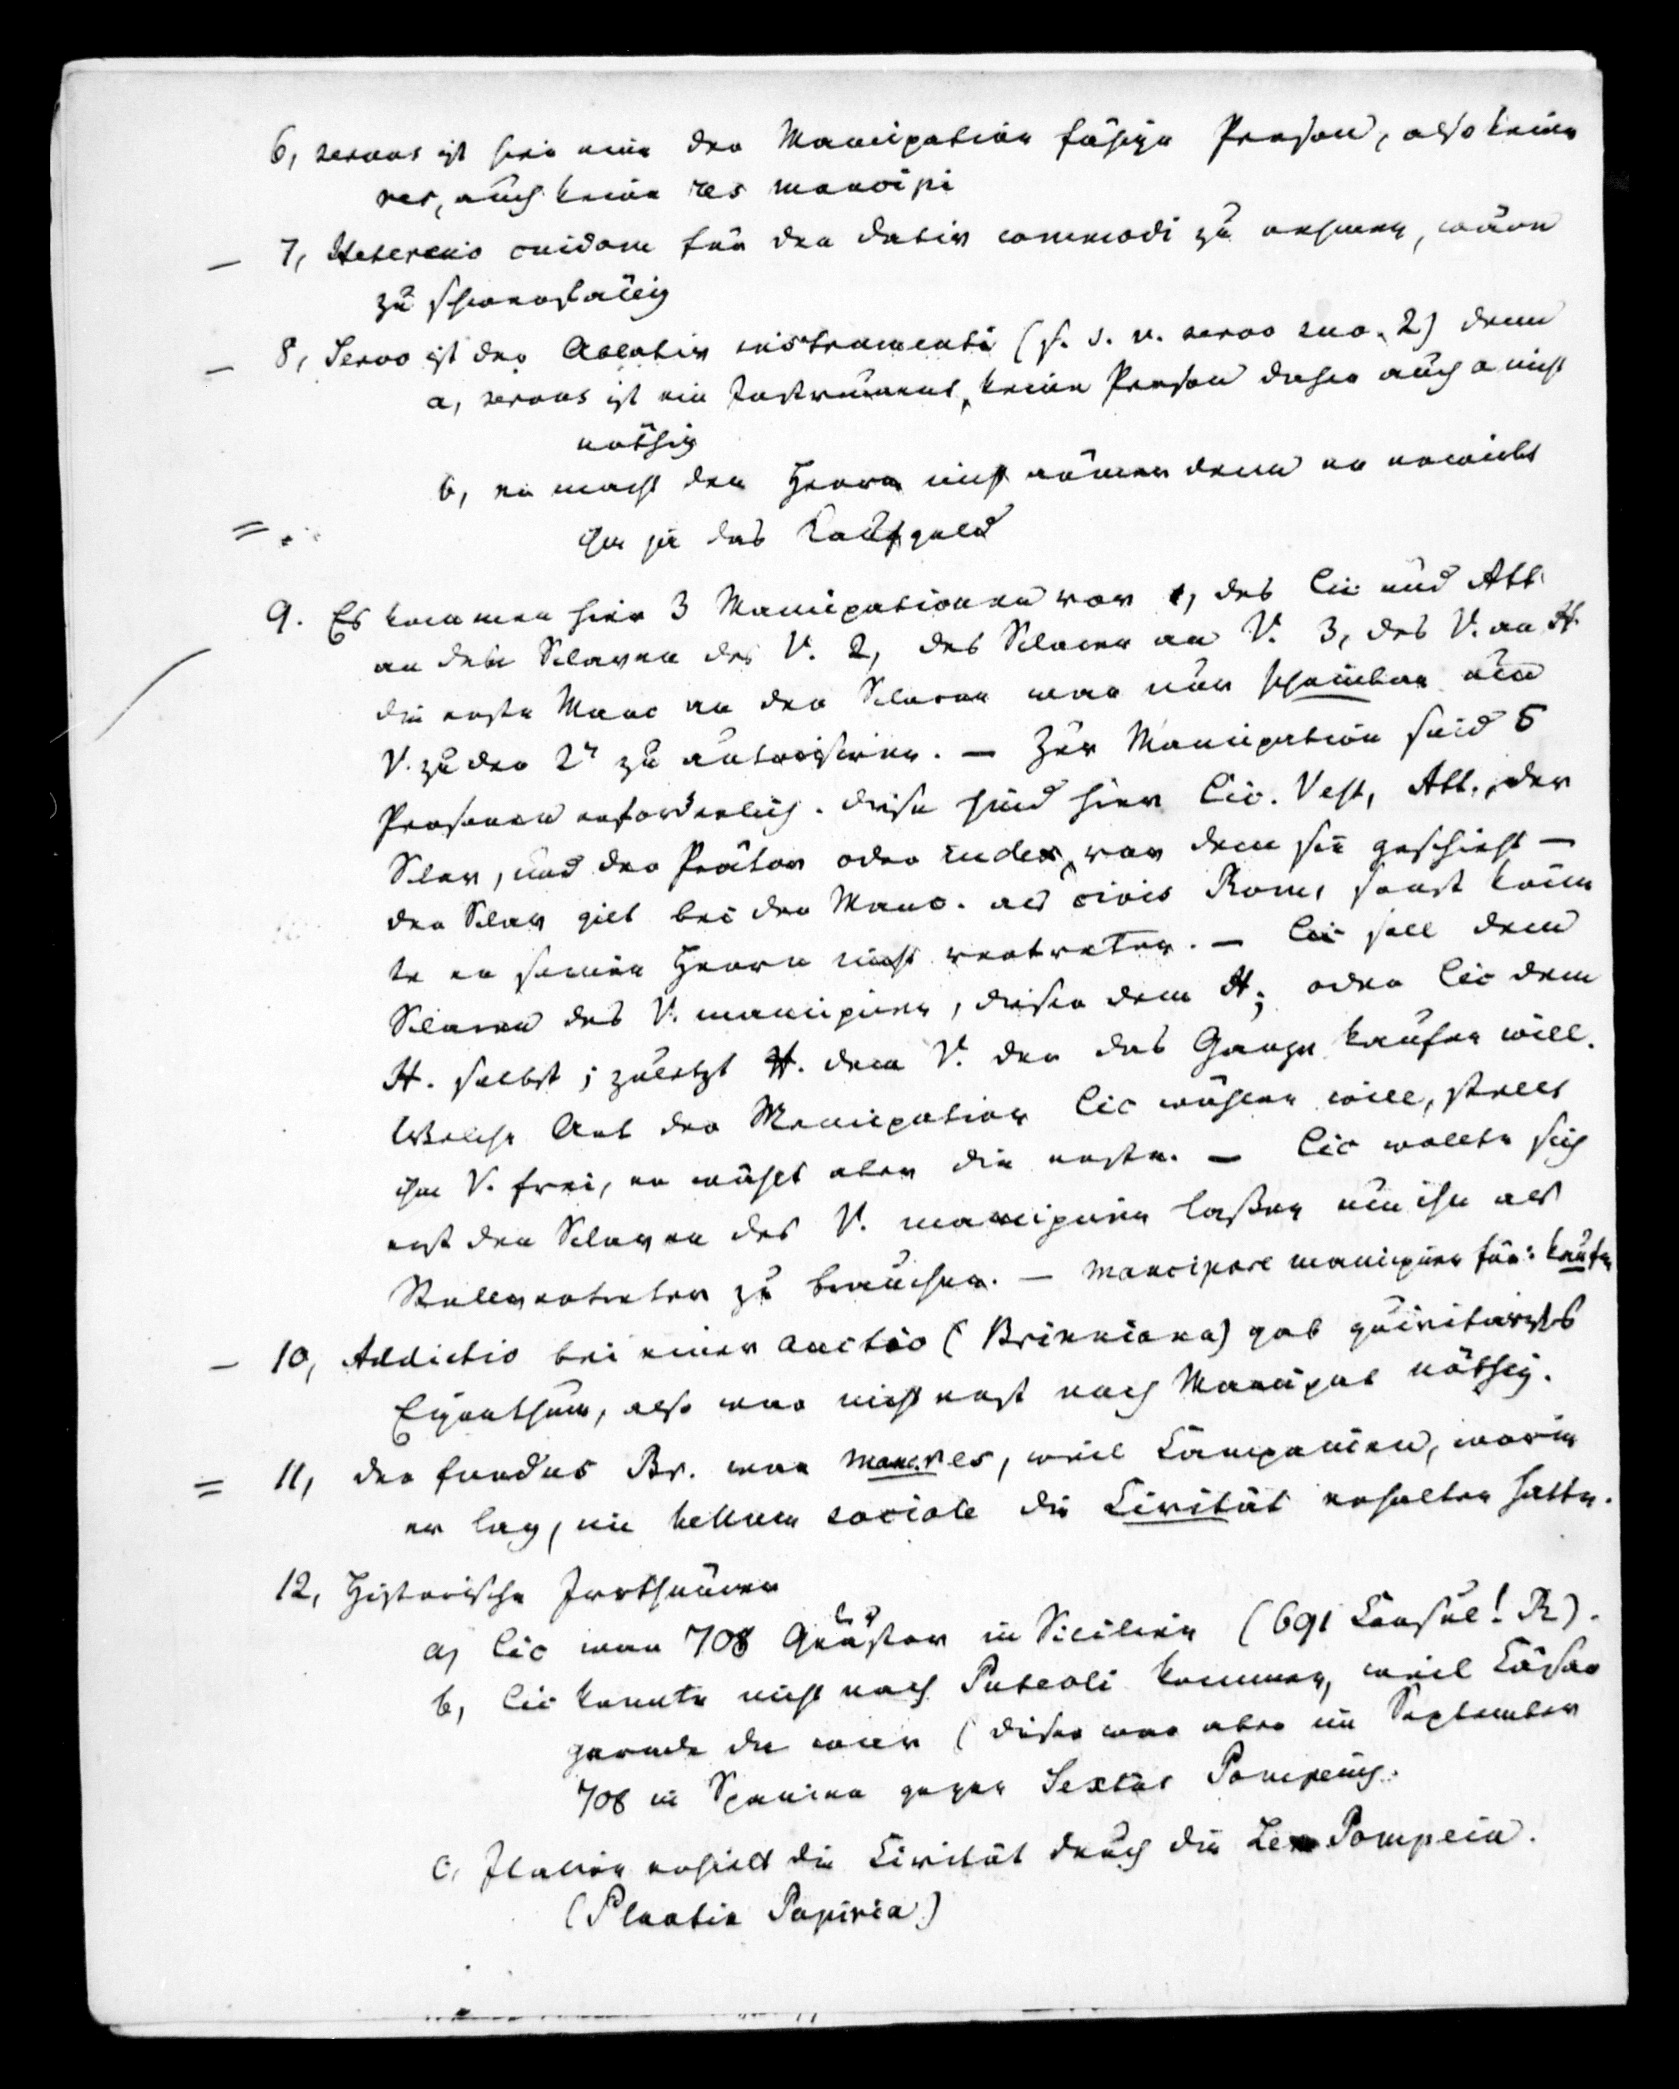 6, servus ist hier eine der Mancipation fähige Person, also keine
res, auch keine res mancipi
– 7, Hetereio cuidam für den dativ commodi zu nehmen, wäre
zu schwerfällig
– 8, Servo ist der Ablativ instrumenti (s. s. v. servo suo. 2) denn
a, servus ist ein Instrument, keine Person daher auch a nicht
nöthig
b, er macht den Herrn nicht ärmer denn er erwirbt
= ihm ja das Kaufgeld
9. Es kommen hier 3 Mancipationen vor 1, des Cic und Att.
an den Sclaven des V. 2, des Sclaven an V. 3, des V. an H.
die erste Manc an den Sclaven war nur scheinbar um
V. zu der 2t zu autorisiren. – Zur Mancipation sind 5
Personen erforderlich. diese sind hier Cic. Vest, Att., der
Sclav, und der Prätor oder iudex, vor dem sie geschieht –
der Sclav gilt bei der Manc. als civis Rom, sonst könn
te er seinen Herrn nicht vertreten. – Cic soll dem
Sclaven des V. mancipiren, dieser dem H; oder Cic dem
H. selbst; zuletzt H. dem V. der das Ganze kaufen will.
Welche Art der Mancipation Cic wählen will, stellt
ihm V. frei, er wählt aber die erste. – Cic wollte sich
erst den Sclaven des V. mancipiren laßen um ihn als
Stellvertreter zu brauchen. – mancipare mancipiren für: kaufen
– 10, Addictio bei einer auctio (Brinniana) gab quiritarisches
Eigenthum, also war nicht erst noch Mancipat nöthig.
= 11, der fundus Br. war manc. res, weil Campanien, worin
er lag, im bellum sociale die Civität erhalten hatte.
12, Historische Irrthümer
a, Cic war 708 Quästor in Sicilien (691 Consul! R).
b, Cic konnte nicht nach Puteoli kommen, weil Cäsar
gerade da war (dieser war aber im September
708 in Spanien gegen Sextus Pompeius.
c, Italien erhielt die Civität durch die Lex Pompeia.
(Plautia Papiria)